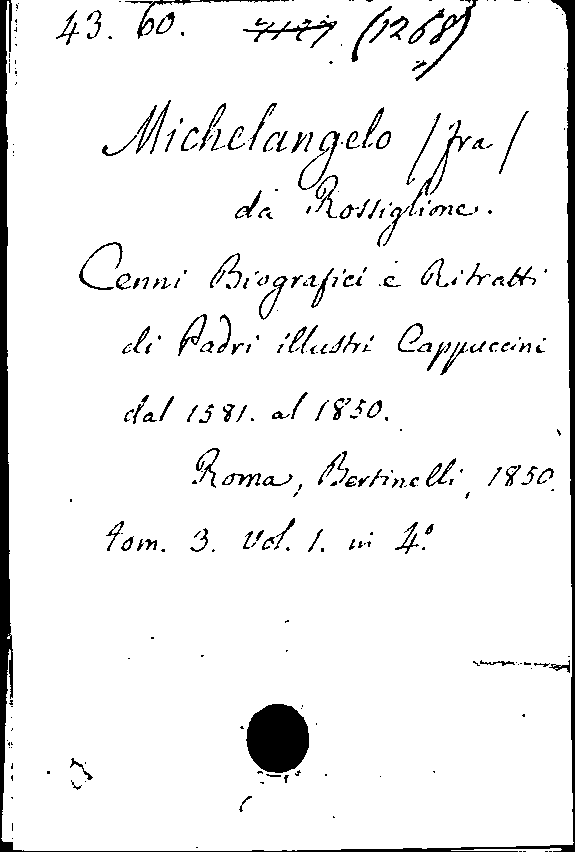 43. 60. 7127 (1268)
Michelangelo /fra/
da Rossiglione.
Cenni Biografici e Ritratti
di Padri illustri Cappuccini
dal 1581. al 1850.
Roma, Bertinelli, 1850.
tom. 3. Vol. 1. in 4.º